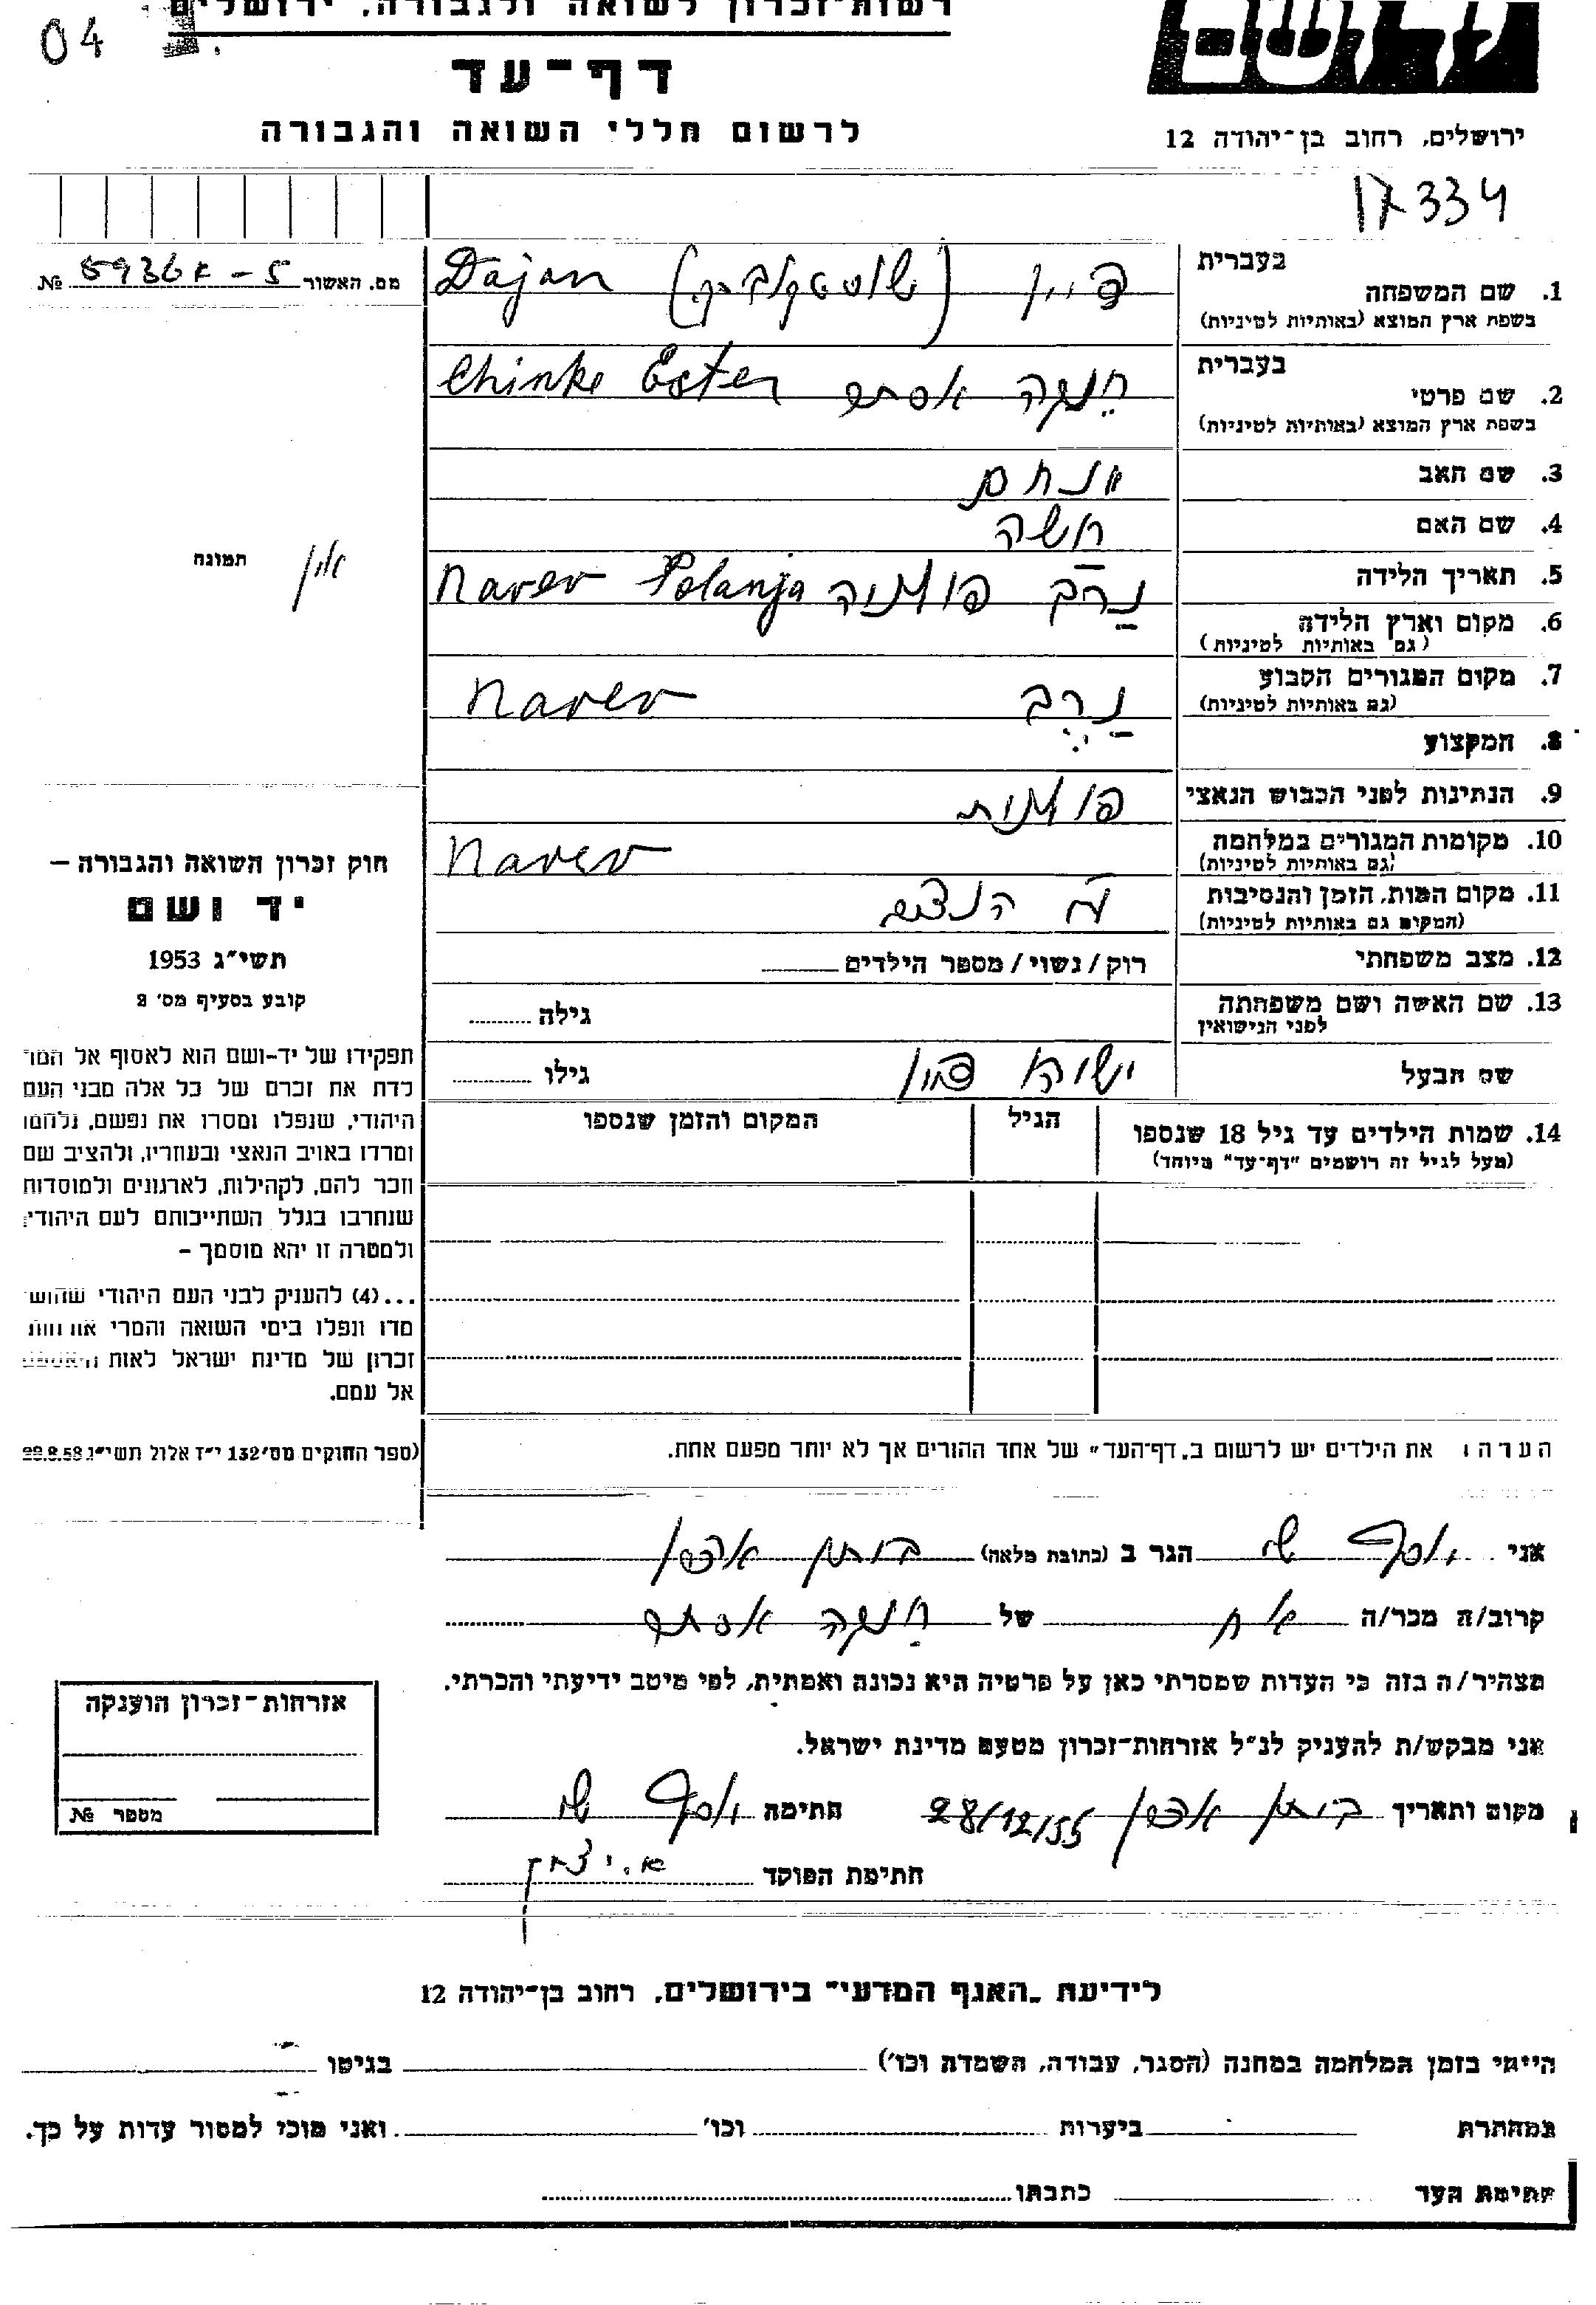 04
רשות־זכרון לשואה ולגבורה, ירושלים
דף־עד
לרשום חללי השואה והגבורה
ירושלים, רחוב בן־יהודה 12
17334
מס. האשור № 5936א-5
1. שם המשפחה בעברית דיין Dajan
בשפת ארץ המוצא (באותיות לטיניות)
2. שם פרטי בעברית חינקה אסתר Chinke Ester
בשפת ארץ המוצא (באותיות לטיניות)
3. שם האב מנחם
4. שם האם משה
5. תאריך הלידה
6. מקום וארץ הלידה נרב פולניה Narev Polanja
(גם באותיות לטיניות)
7. מקום המגורים הקבוע נרב Narev
(גם באותיות לטיניות)
8. המקצוע
9. הנתינות לפני הכבוש הנאצי פולנית
10. מקומות המגורים במלחמה Narev
(גם באותיות לטיניות)
11. מקום המות, הזמן והנסיבות
(המקום גם באותיות לטיניות)
12. מצב משפחתי רוק/נשוי/מספר הילדים
13. שם האשה ושם משפחתה גילה
לפני הנישואין
שם הבעל דיין גילו
14. שמות הילדים עד גיל 18 שנספו הגיל המקום והזמן שנספו
(מעל לגיל זה רושמים "דף־עד" מיוחד)
תמונה אין
חוק זכרון השואה והגבורה –
יד ושם
תשי"ג 1953
קובע בסעיף מס' 2
תפקידו של יד-ושם הוא לאסוף אל המו
לדת את זכרם של כל אלה מבני העם
היהודי, שנפלו ומסרו את נפשם, נלחמו
ומרדו באויב הנאצי ובעוזריו, ולהציב שם
וזכר להם, לקהילות, לארגונים ולמוסדות
שנחרבו בגלל השתייכותם לעם היהודי;
ולמטרה זו יהא מוסמך –
...(4) להעניק לבני העם היהודי שהוש
מדו ונפלו בימי השואה והמרי אזרחות
זכרון של מדינת ישראל לאות היאספם
אל עמם.
(ספר החוקים מס' 132 י"ז אלול תשי"ג 28.8.53)
הערה: את הילדים יש לרשום ב„דף־העד" של אחד ההורים אך לא יותר מפעם אחת.
אני יוסף שי הגר ב (כתובת מלאה)
קרוב/ה מכר/ה אח של חינקה אסתר
מצהיר/ה בזה כי העדות שמסרתי כאן על פרטיה היא נכונה ואמתית, לפי מיטב ידיעתי והכרתי.
אני מבקש/ת להעניק לנ"ל אזרחות־זכרון מטעם מדינת ישראל.
מקום ותאריך 28/12/55 חתימה יוסף שי
חתימת הפוקד א. יצחק
אזרחות־זכרון הוענקה
מספר №
לידיעת „האגף המדעי" בירושלים, רחוב בן־יהודה 12
הייתי בזמן המלחמה במחנה (הסגר, עבודה, השמדה וכו') בגיטו
במחתרת ביערות וכו' ואני מוכן למסור עדות על כך.
חתימת העד כתבתו